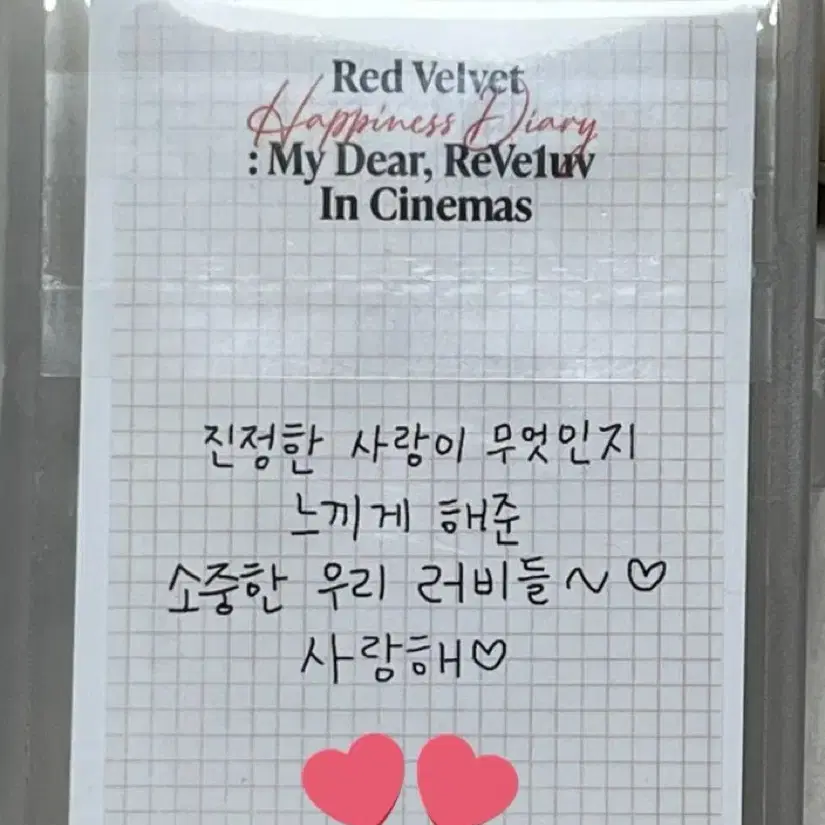 Red Velvet
Happiness Diary
: My Dear, ReVe1uv
In Cinemas
진정한 사랑이 무엇인지
느끼게 해준
소중한 우리 러비들~♡
사랑해♡